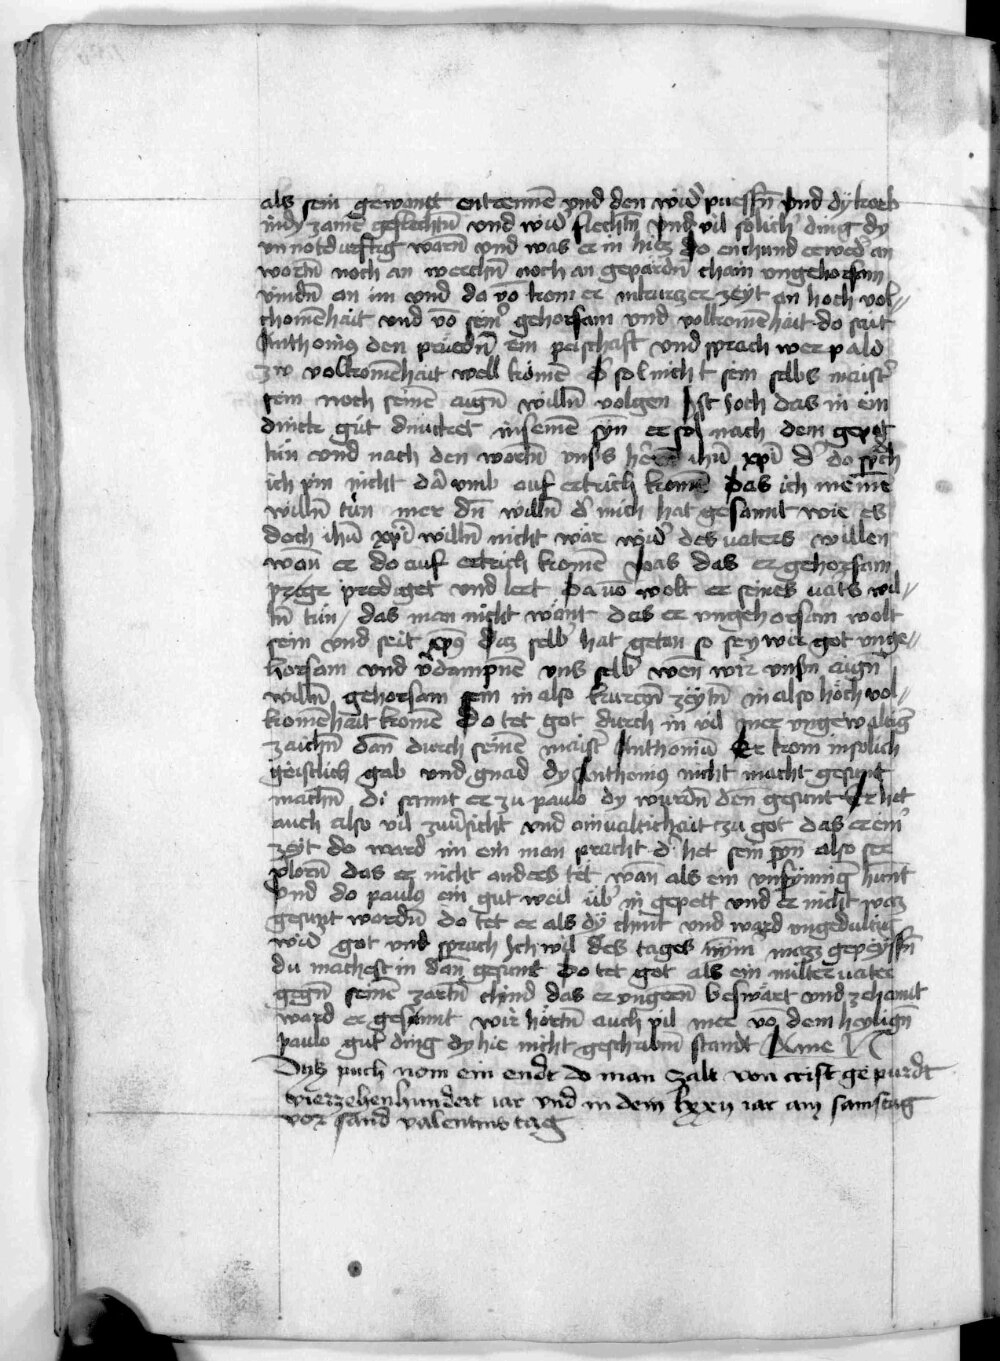 als sein gewantt entrennē vnd den wid' puessn̄ vnd dÿ koeb
in dy zamē geflechtn̄ vnd wid' flechtn̄ vnd vil solich' ding dy
vnnotdurftig warn̄ vnd was er in hiez do enchund er wed' an
wortn̄ noch an werchn̄ noch an gepärdn̄ chain vngehorsam
vindn̄ an im vnd da vō kom er in kurczer zeyt an hoch vol⸗
chomēhait vnd vō seinʼ gehorsam vnd volkomēhait do sait
Anthoniꝰ den prüedn̄ ein peischaft vnd sprach wer pald
zw volkomēhait well kömē d' sol nicht sein selbs maist'
sein noch seinē augn̄ willn̄ volgen Ist ioch das in ein
dinck güt dnucket in seinē syn̄ er sol nach dem gepot
tün vnd nach den wortn̄ vnss hērn̄ ihū xp̄i d' do sp̄ch
ich pin nicht dar vmb auf ertrich komē das ich meinē
willn̄ tün mer dn̄ willn̄ d' mich hat gesannt wie es
doch ihū xp̄i willn̄ nicht wär wid' des vaters willen
wan̄ er do auf ertrich komē was das er gehorsam
prege pred get vnd lert da vō wolt er seines vats wil⸗
ln̄ tün das man nicht wänt das er vngehorsam wolt
sein vnd seit xp̄s daz selb hat getan so sey wir got vnge⸗
horsam vnd v'dampnē vns selb wen̄ wir vnsm̄ aign̄
willn̄ gehorsam sein in also kurczn̄ zeytn̄ in also höch vol⸗
komēhait komē Do tet got durch in vil mer vngewalig
zaichn̄ dan̄ durch seinē maist' Anthoniū Er kom in solich
geistlich gab vnd gnad dy Anthoniꝰ nicht macht gesunt
machn̄ di sannt er zu paulo dy wurdn̄ den̄ gesunt Er het
auch also vil zuu'sicht vnd ainualtichait zu got das er ein'
zeyt do ward im ein man pracht d' het sein syn̄ also ser
v'lorn̄ das er nicht anders tet wan̄ als ein vnsynnig hunt
vnd do pauls ein gut weil üb' in gepett vnd er nicht waz
gesunt wordn̄ do tet er als dÿ chint vnd ward vngedultig
wid' got vnd sprach Ich wil des tages nym̄ mazz gepeyssn̄
du machest in dan̄ gesunt Do tet got als ein milter vater
gegn̄ seinē zartn̄ chind das er vngern̄ beswärt vnd zehannt
ward er gesunnt wir hörtn̄ auch vil mer vō dem heylign̄
paulo gut' ding dy hie nicht geschribn̄ standt Ame N
Dijs puch nom ein endt do man zalt von crist gepurdt
vierzehenhundert iar vnd in dem lxxij iar am samstag
vor sand valentins tag